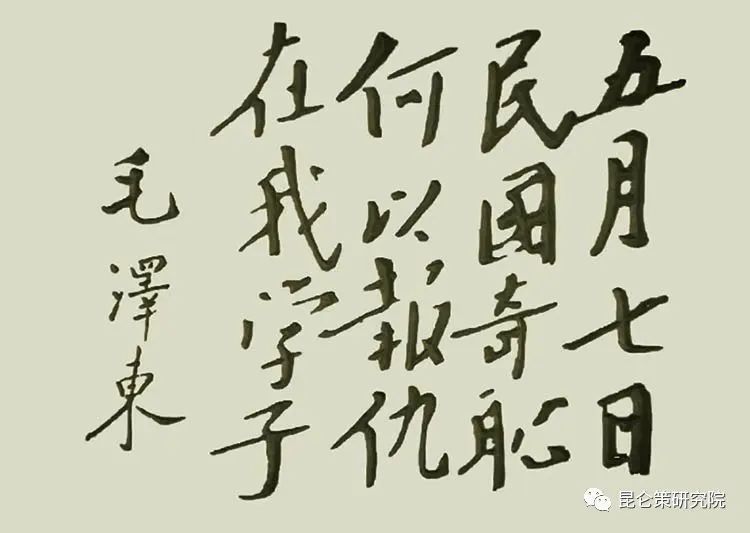 五月七日
民國奇恥
何以報仇
在我学子
毛澤東
昆仑策研究院